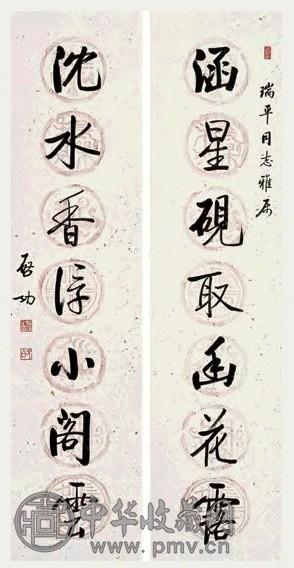 瑞平同志雅属
涵星硯取幽花露
沈水香浮小閣雲
啓功
中华收藏网
www.pmv.cn